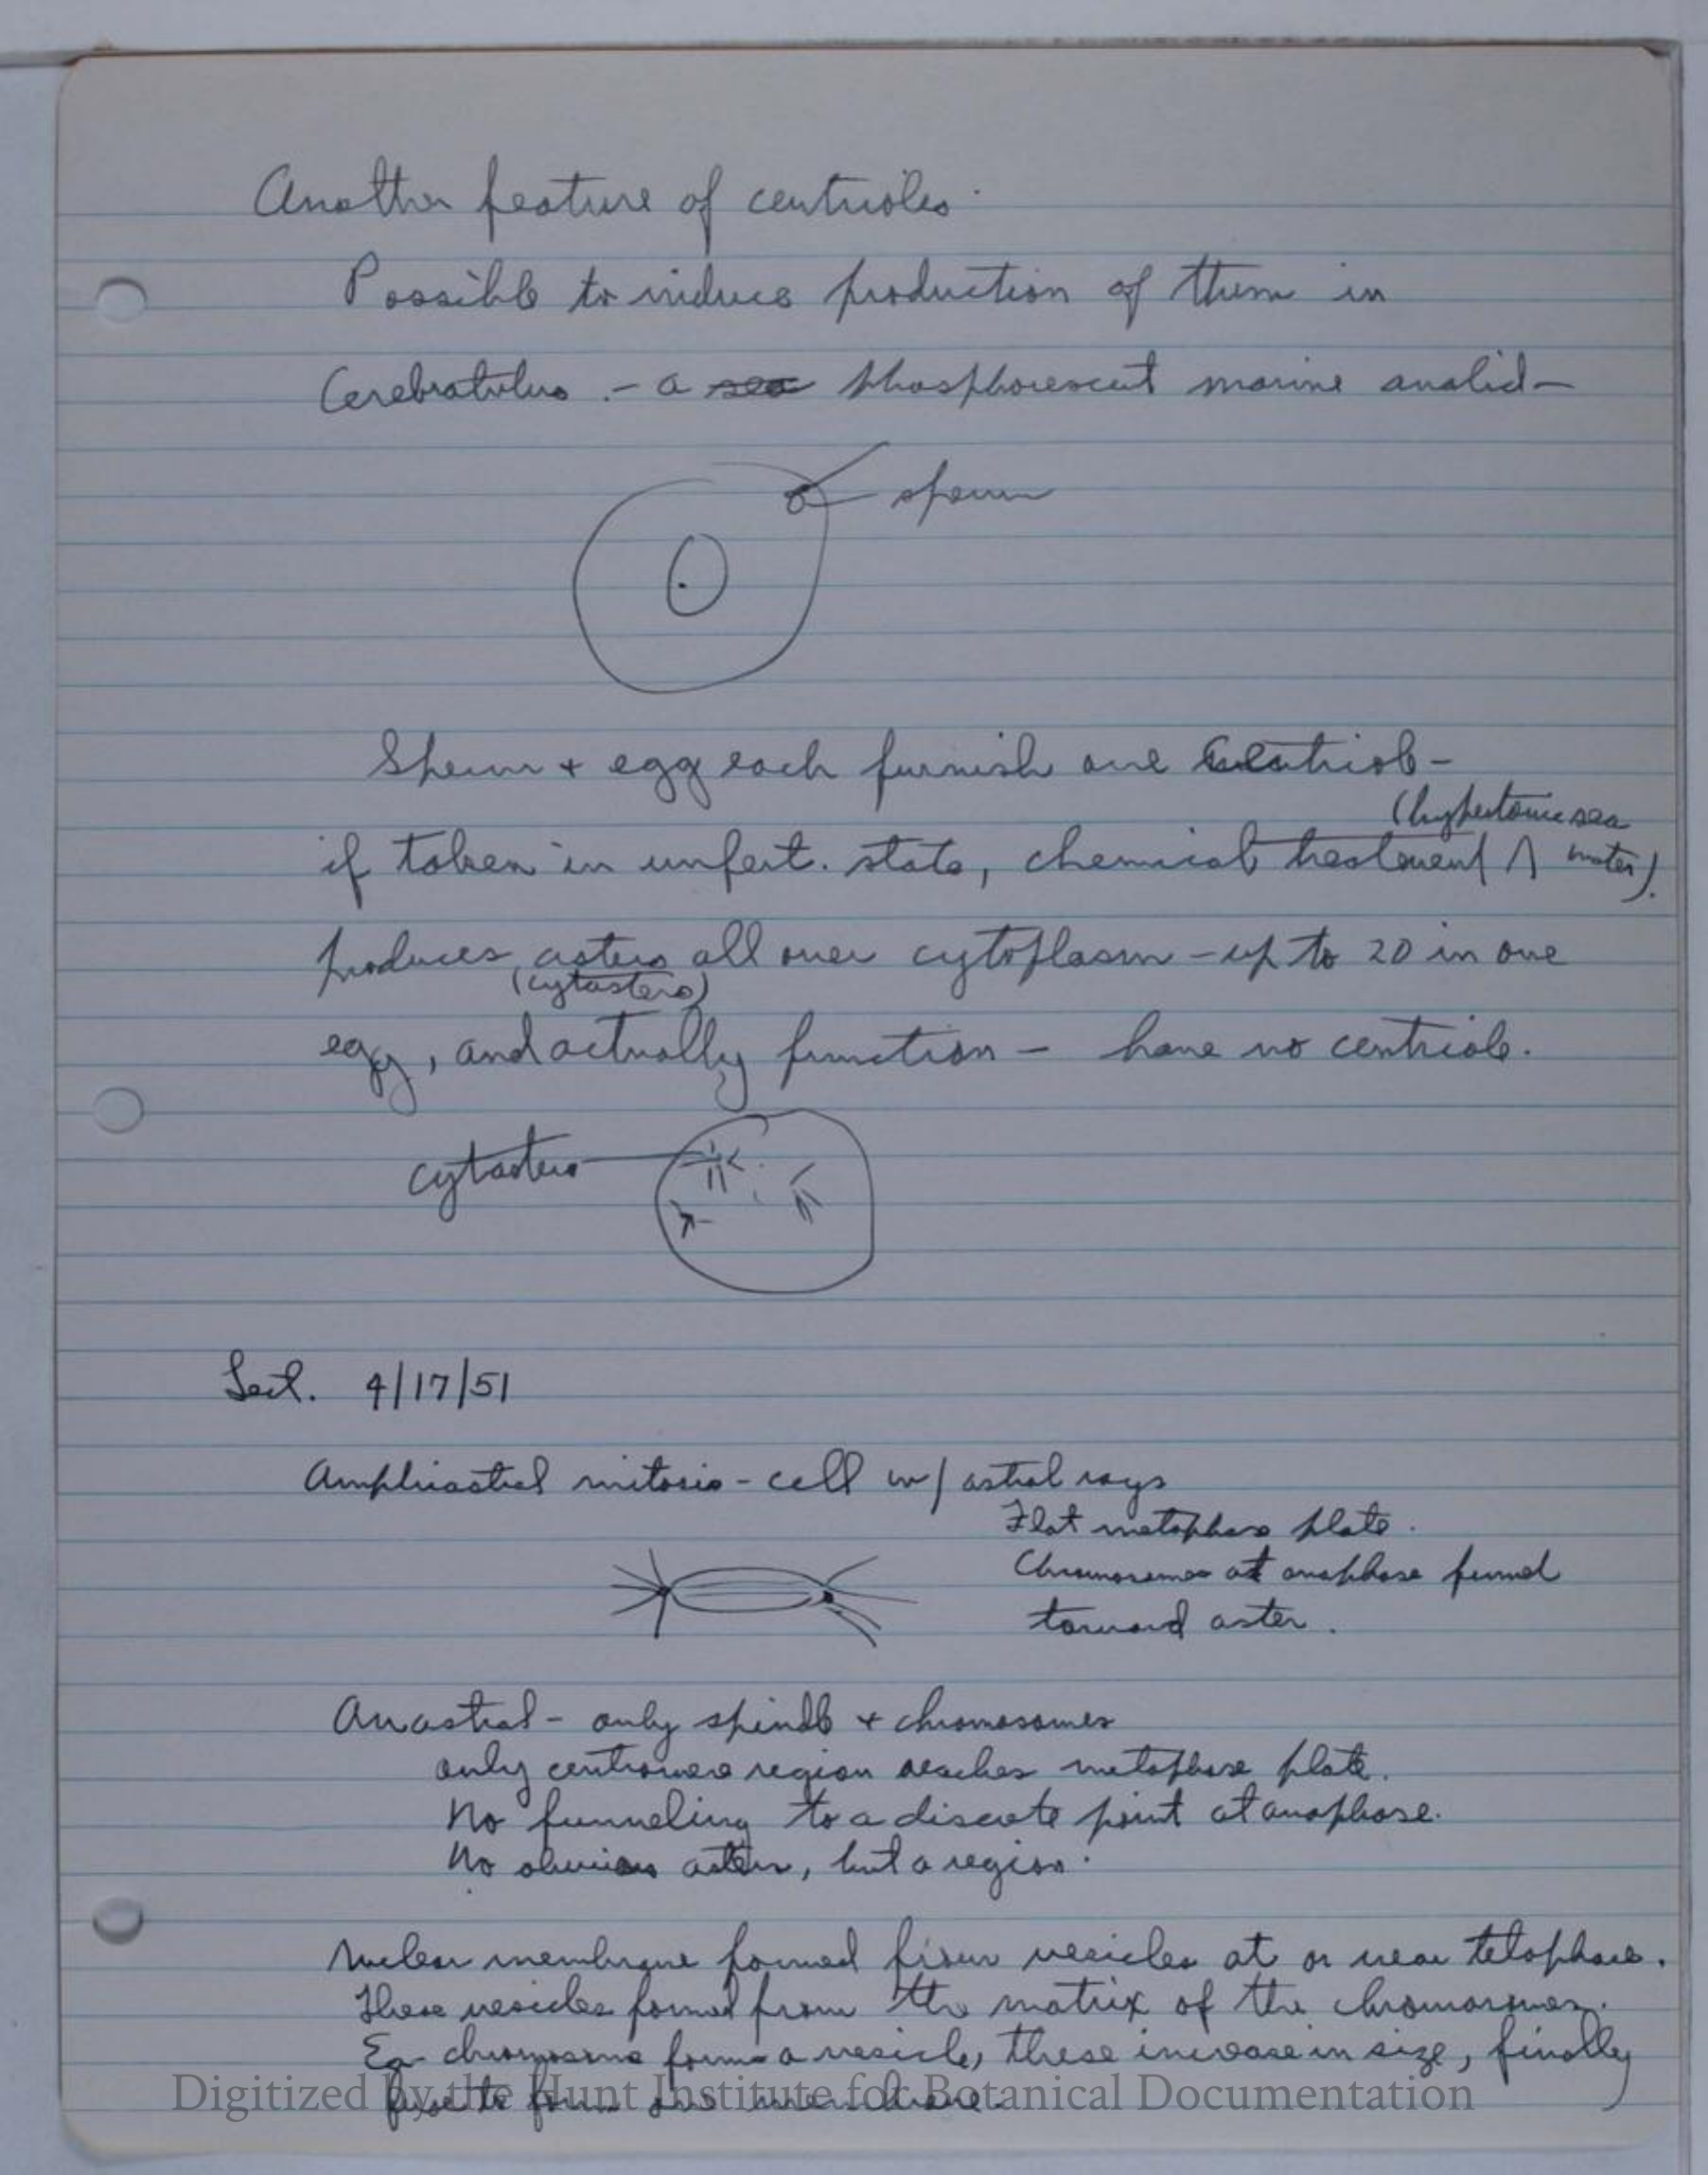 Another feature of centrioles.
Possible to induce production of them in
Cerebratulus. - a sea phosphorescent marine analid-
sperm
Sperm + egg each furnish one centriole -
(hypertonic sea
if taken in unfert. state, chemical treatment ∧ water).
produces asters all over cytoplasm - up to 20 in one
(cytasters)
egg, and actually function - have no centriole.
cytasters
Lect. 4/17/51
Amphiastral mitosis - cell w/ astral rays
Flat metaphase plate.
Chromosomes at anaphase funnel
toward aster.
Anastral - only spindle + chromosomes
only centromere region reaches metaphase plate.
No funneling to a discrete point at anaphase.
No obvious asters, but a region.
Nuclear membrane formed from vesicles at or near telophase.
These vesicles formed from the matrix of the chromosomes.
Ea chromosome forms a vesicle, these increase in size, finally
fuse to form one membrane.
Digitized by the Hunt Institute for Botanical Documentation